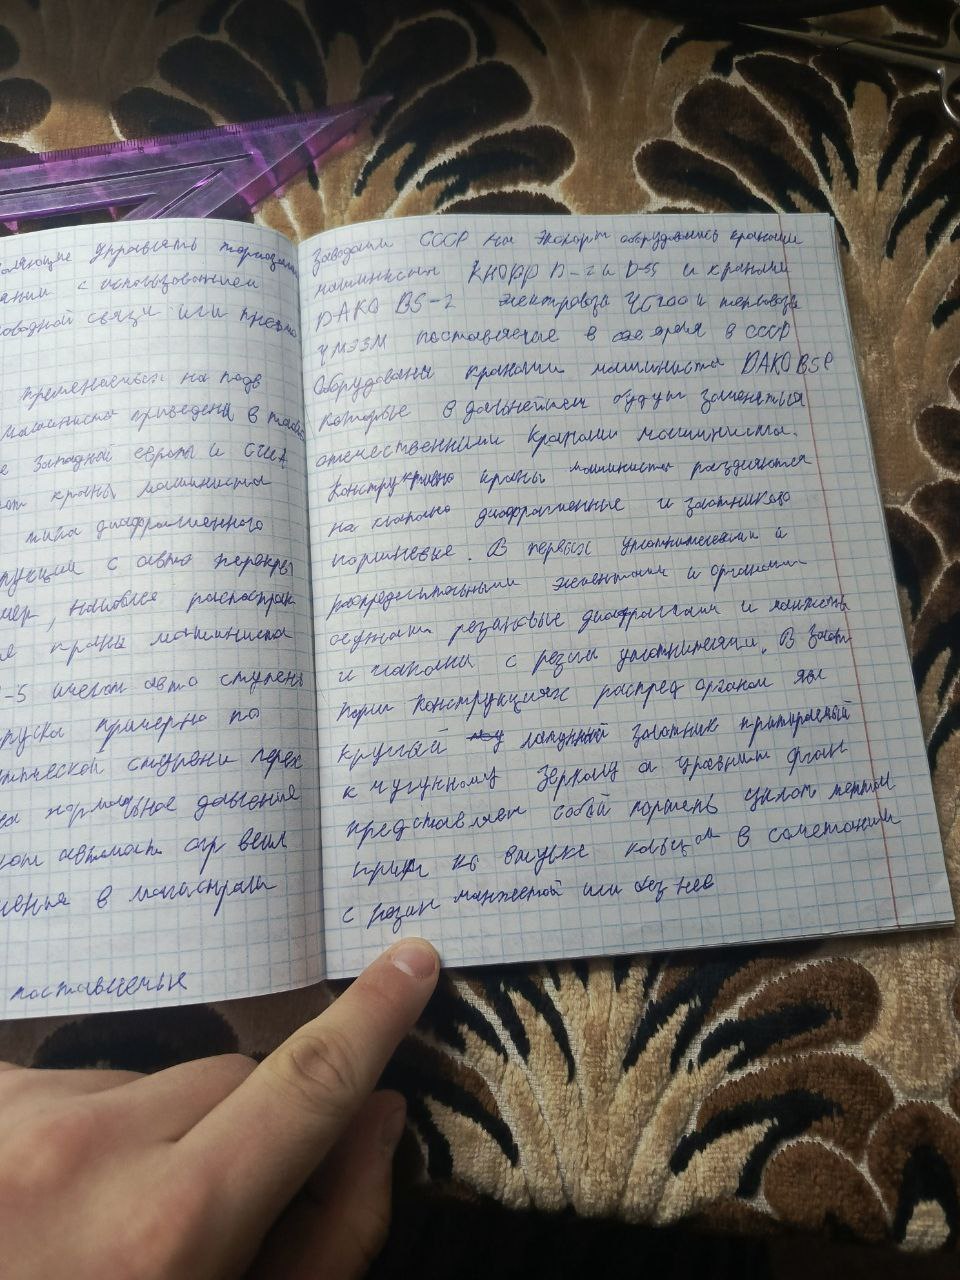 управлять тормозами
с использованием
оводной связи или пневмо
применяемых на подв
машиниста приведены в табл
е Западной европы и США
краны машиниста
типа диафрагменного
рукции с авто перекры
мер, наиболее распостран
е краны машиниста
-5 имеют авто ступень
пуска примерно по
тической ступени перех
нормальное давление
автомат
в магистрали
поставляемые
Заводами СССР на Экспорт оборудовались кранами
машиниста КНОРР D-2 и D-55 и кранами
DAKO BS-2 электровоза ЧС200 и тепловоза
ЧМЭ3М поставляемые в время в СССР
Оборудованы кранами машиниста DAKO BSE
которые в дальнейшем будут заменяться
отечественными кранами машиниста.
Конструктивно краны машиниста разделяются
на клапано диафрагменные и золотниково
поршневые. В первых уплотнителями и
распределительными элементами и органами
служат резиновые диафрагмы и манжеты
и клапаны с резин уплотнителями. В золот
порш конструкциях распред органом явл
круглый латунный золотник притираемый
к чугунному зеркалу а уравнит орган
представляет собой поршень уплот металл
кольцом в сочетании
с резин манжетой или без нее